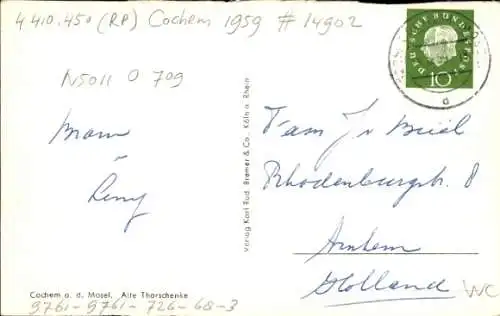 4410.450 (RP) Cochem 1959 # 14902
N5011 O 709
DEUTSCHE BUNDESPOST
10
d
Fam J v
Rhodenburgstr. 8
Arnhem
Holland
WC
Verlag Karl Rud. Bremer & Co., Köln a. Rhein
Cochem a. d. Mosel. Alte Thorschenke
9761-9761-726-68-3